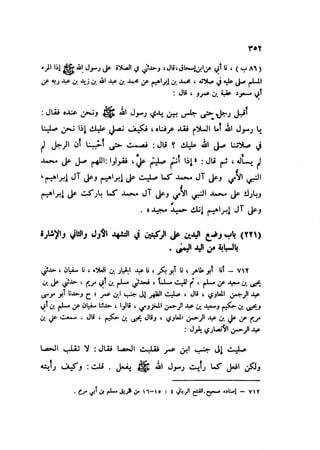 ٣٥٢
( ٨٦ ب ) نا أبي ، عن ابن إسحاق ، قال : وحدثني في الصلاة على رسول الله ﷺ إذا المرء
المسلم صلى عليه في صلاته ، محمد بن إبراهيم عن محمد بن عبد الله بن زيد بن عبد ربه عن
أبي مسعود عقبة بن عمرو ، قال :
أقبل رجل حتى جلس بين يدي رسول الله ﷺ ونحن عنده فقال :
يا رسول الله أما السلام فقد عرفناه ، فكيف نصلي عليك إذا نحن صلينا
في صلاتنا صلى الله عليك ؟ قال : فصمت حتى أحببنا أن الرجل لم
يسأله ، ثم قال : « إذا أنتم صليتم علي ، فقولوا : اللهم صل على محمد
النبي الأمي وعلى آل محمد كما صليت على إبراهيم وعلى آل إبراهيم ،
وبارك على محمد النبي الأمي وعلى آل محمد كما باركت على إبراهيم
وعلى آل إبراهيم إنك حميد مجيد » .
(٢٢١) باب وضع اليدين على الركبتين في التشهد الأول والثاني والإشارة
بالسبابة من اليد اليمنى .
٧١٢ – أنا أبو طاهر ، نا أبو بكر ، نا عبد الجبار بن العلاء ، نا سفيان ، حدثني
يحيى بن سعيد عن مسلم ، ثم لقيت مسلماً ، فحدثني مسلم بن أبي مريم ، حدثني علي بن
عبد الرحمن المعاوي ، قال : صليت الظهر إلى جنب ابن عمر ؛ ح وحدثنا أبو موسى
ويحيى بن حكيم وسعيد بن عبد الرحمن المخزومي ، قالوا ، حدثنا سفيان عن مسلم بن أبي
مريم عن علي بن عبد الرحمن المعاوي ، وقال يحيى بن حكيم ، قال : سمعت علي بن
عبد الرحمن الأنصاري يقول :
صليت إلى جنب ابن عمر فقلبت الحصا فقال : لا تقلب الحصا
ولكن افعل كما رأيت رسول الله ﷺ يفعل . قلت : وكيف رأيته
٧١٢ – إسناده صحيح. الفتح الرباني ٤ : ١٥-١٦ من طريق مسلم بن أبي مريم .